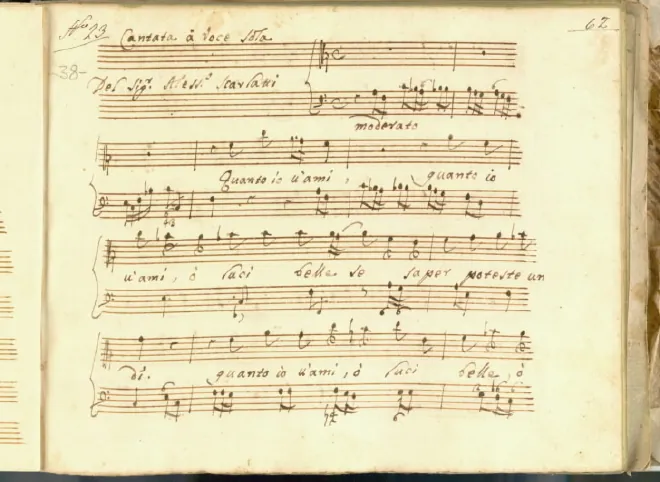 No 23 Cantata à Voce Sola 62
38-
Del Sigr. Aless.o Scarlatti
moderato
Quanto io v'ami, quanto io
v'ami, ò luci belle se saper poteste un
dì. quanto io v'ami, ò luci belle, ò